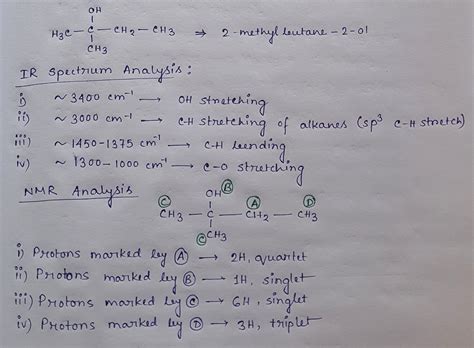 OH
H₃C — C — CH₂ — CH₃ ⇒ 2-methyl butane-2-ol
CH₃
IR Spectrum Analysis :
i) ~ 3400 cm⁻¹ → OH stretching
ii) ~ 3000 cm⁻¹ → C-H stretching of alkanes (sp³ C-H stretch)
iii) ~ 1450-1375 cm⁻¹ → C-H bending
iv) ~ 1300-1000 cm⁻¹ → C-O stretching
NMR Analysis
OH B
C A D
CH₃ — C — CH₂ — CH₃
CH₃
C
i) Protons marked by A → 2H, quartet
ii) Protons marked by B → 1H, singlet
iii) Protons marked by C → 6H, singlet
iv) Protons marked by D → 3H, triplet